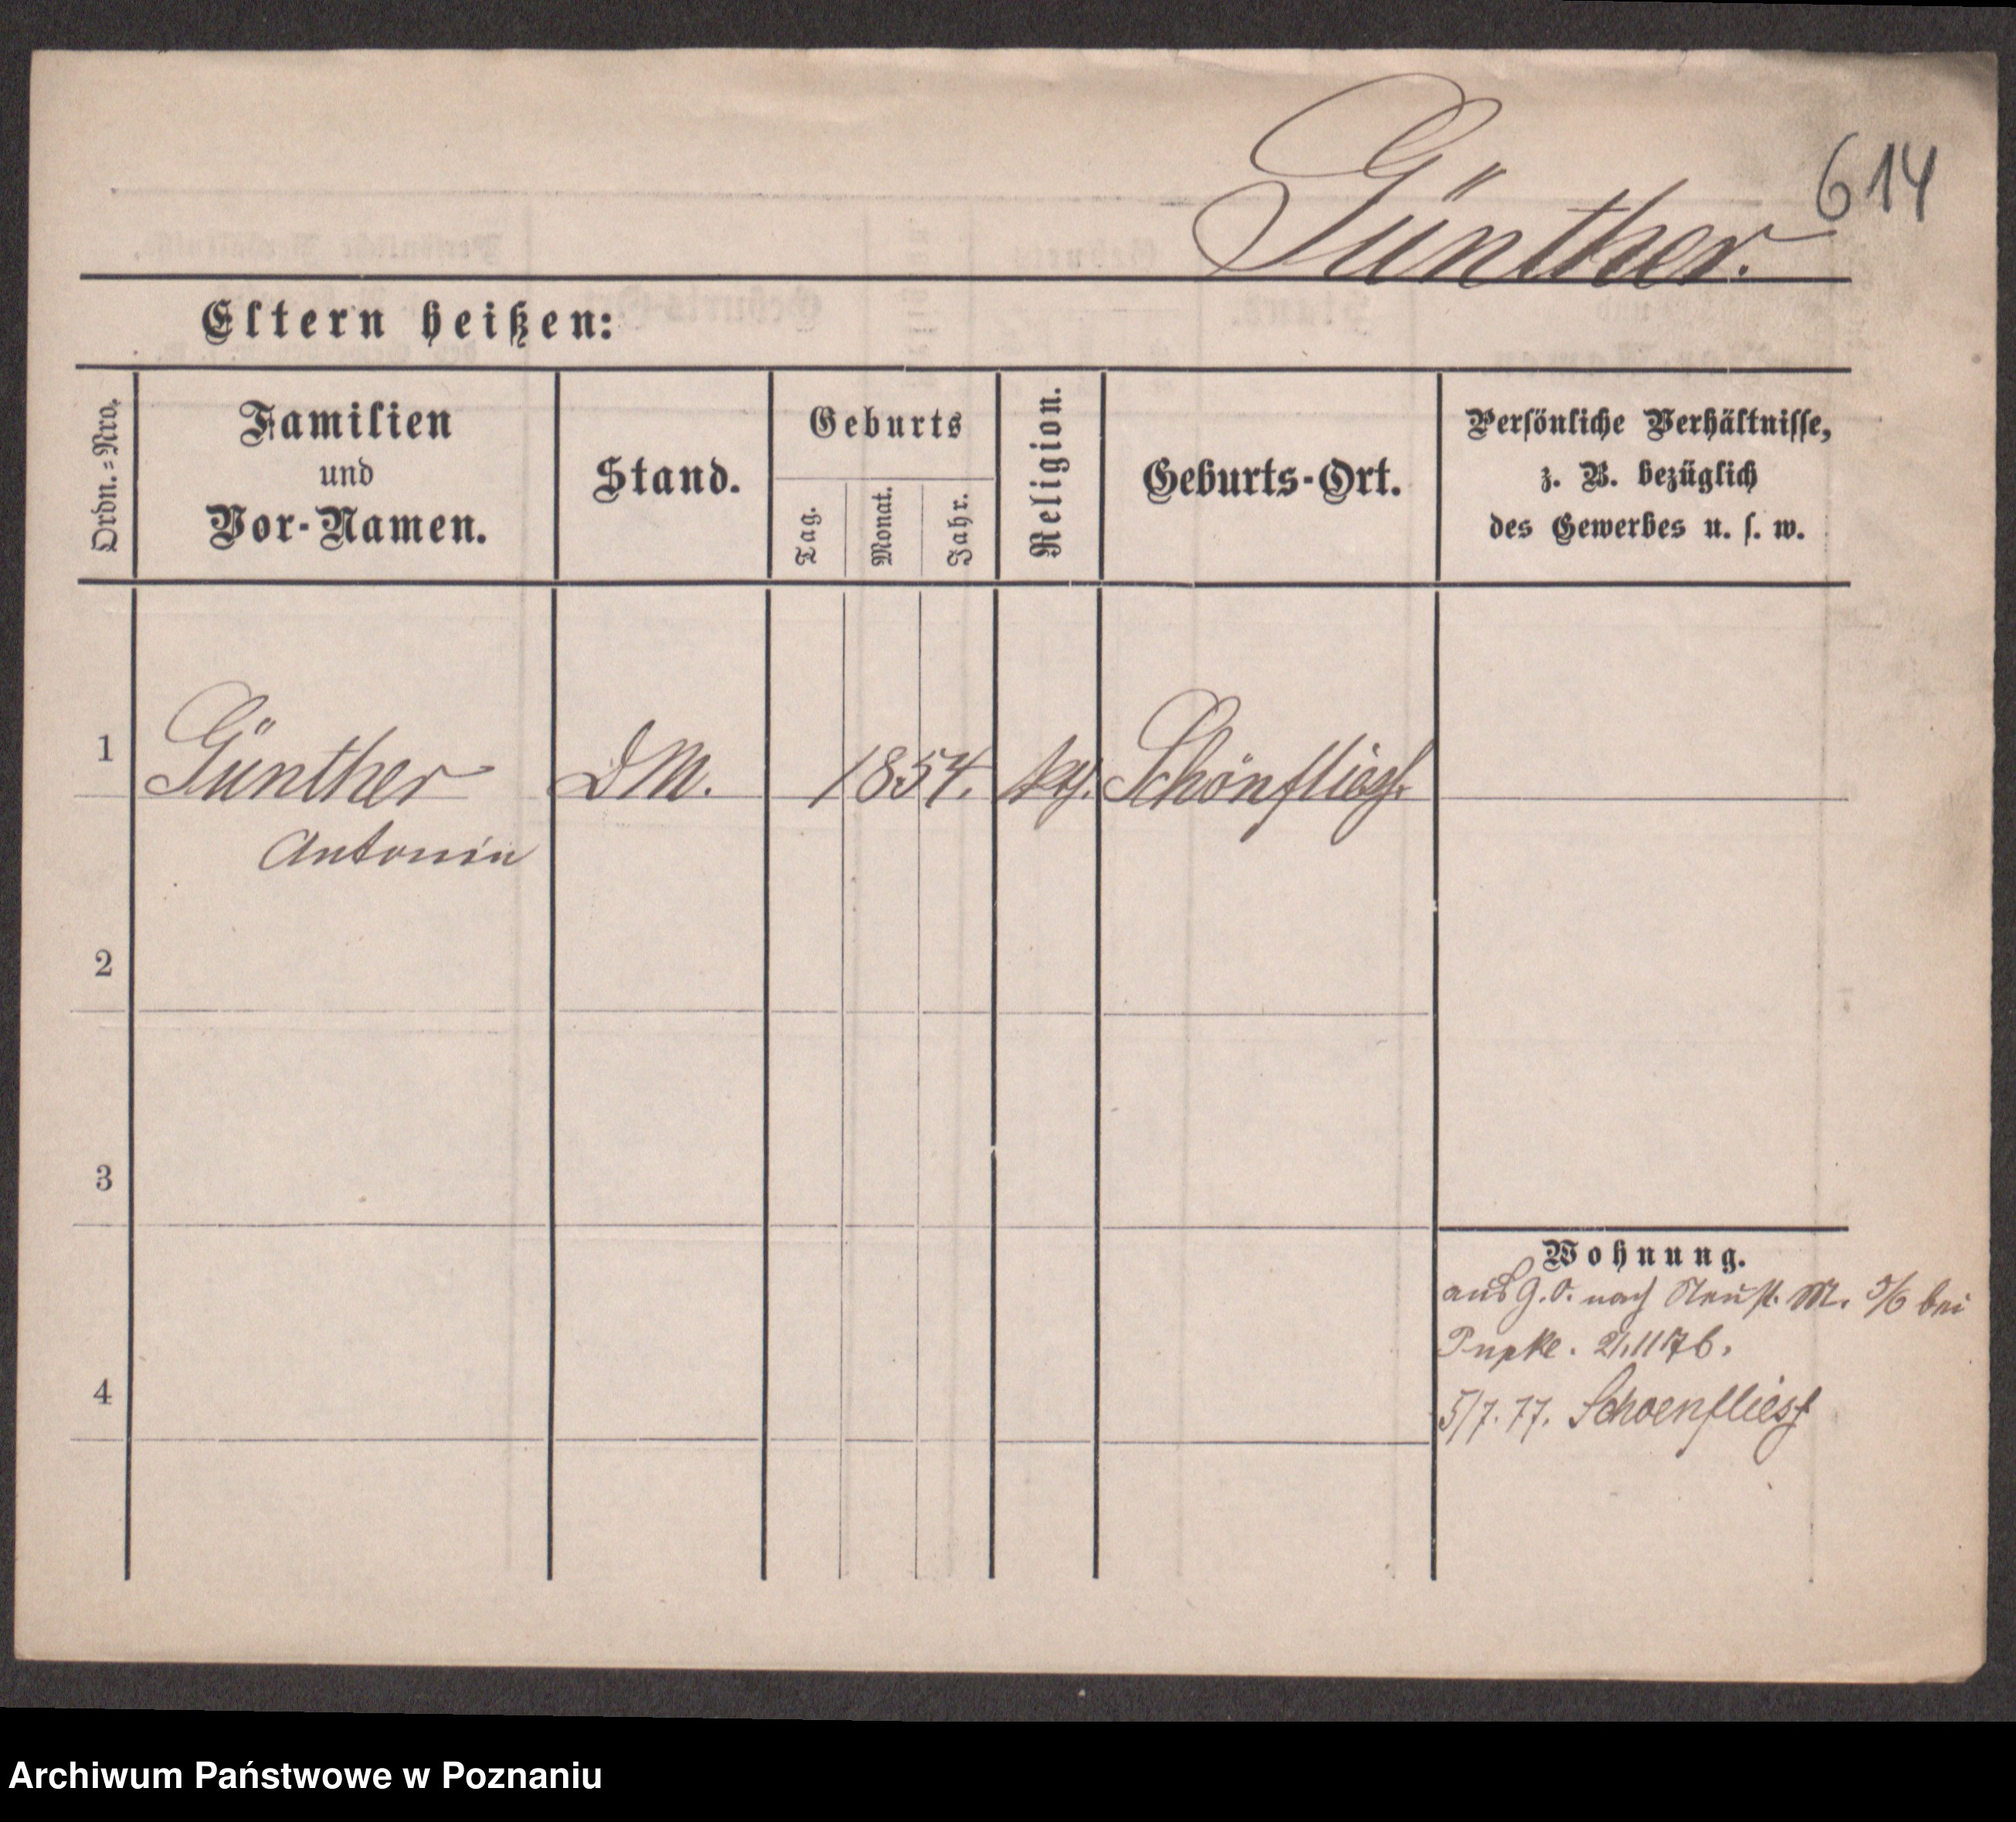 614
Günther.
Eltern heißen:
Ordn.=Nro.
Familien
und
Vor-Namen.
Stand.
Geburts
Tag.
Monat.
Jahr.
Religion.
Geburts-Ort.
Persönliche Verhältnisse,
z. B. bezüglich
des Gewerbes u. s. w.
1
Günther
DM.
1854.
Schönfliess.
Antonin
2
3
4
Wohnung.
aus G. O. nach Neust. M. 5/6 bei
Pupke. 21.11 76.
5/7. 77. Schoenfliess
Archiwum Państwowe w Poznaniu